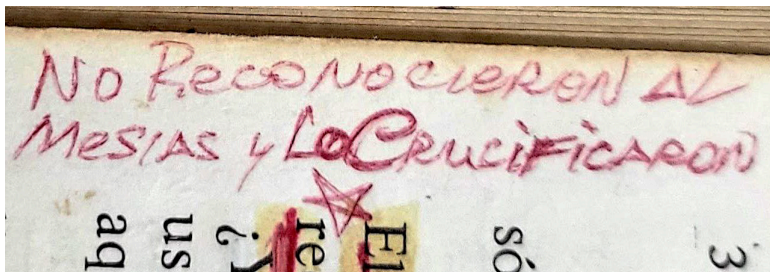 No Reconocieron al
Mesias y Lo Crucificaron
aq
us
¿Y
re
El
só
3